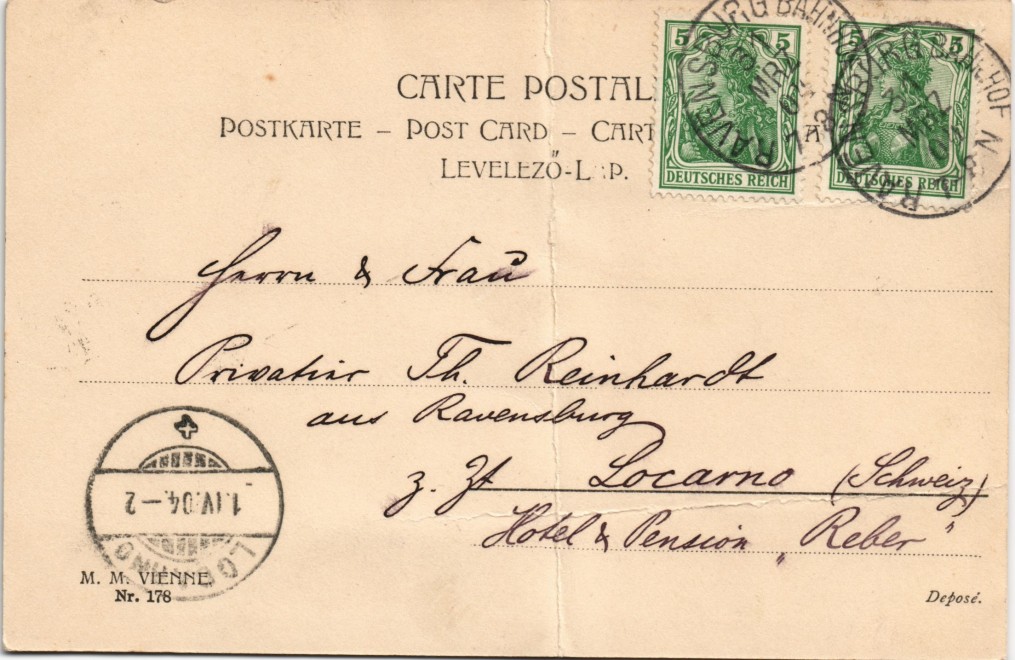 CARTE POSTAL
POSTKARTE – POST CARD – CART
LEVELEZŐ-L P.
5 5
DEUTSCHES REICH
5 5
DEUTSCHES REICH
RAVENSBURG BAHNHOF
31 MRZ 04
7-8 N
RAVENSBURG BAHNHOF
31 MRZ 04
7-8 N
Herrn & Frau
Privatier Th. Reinhardt
aus Ravensburg
z. Zt Locarno (Schweiz)
Hotel & Pension „Reber"
LOCARNO
1.IV.04.–2
M. M. VIENNE
Nr. 178
Deposé.